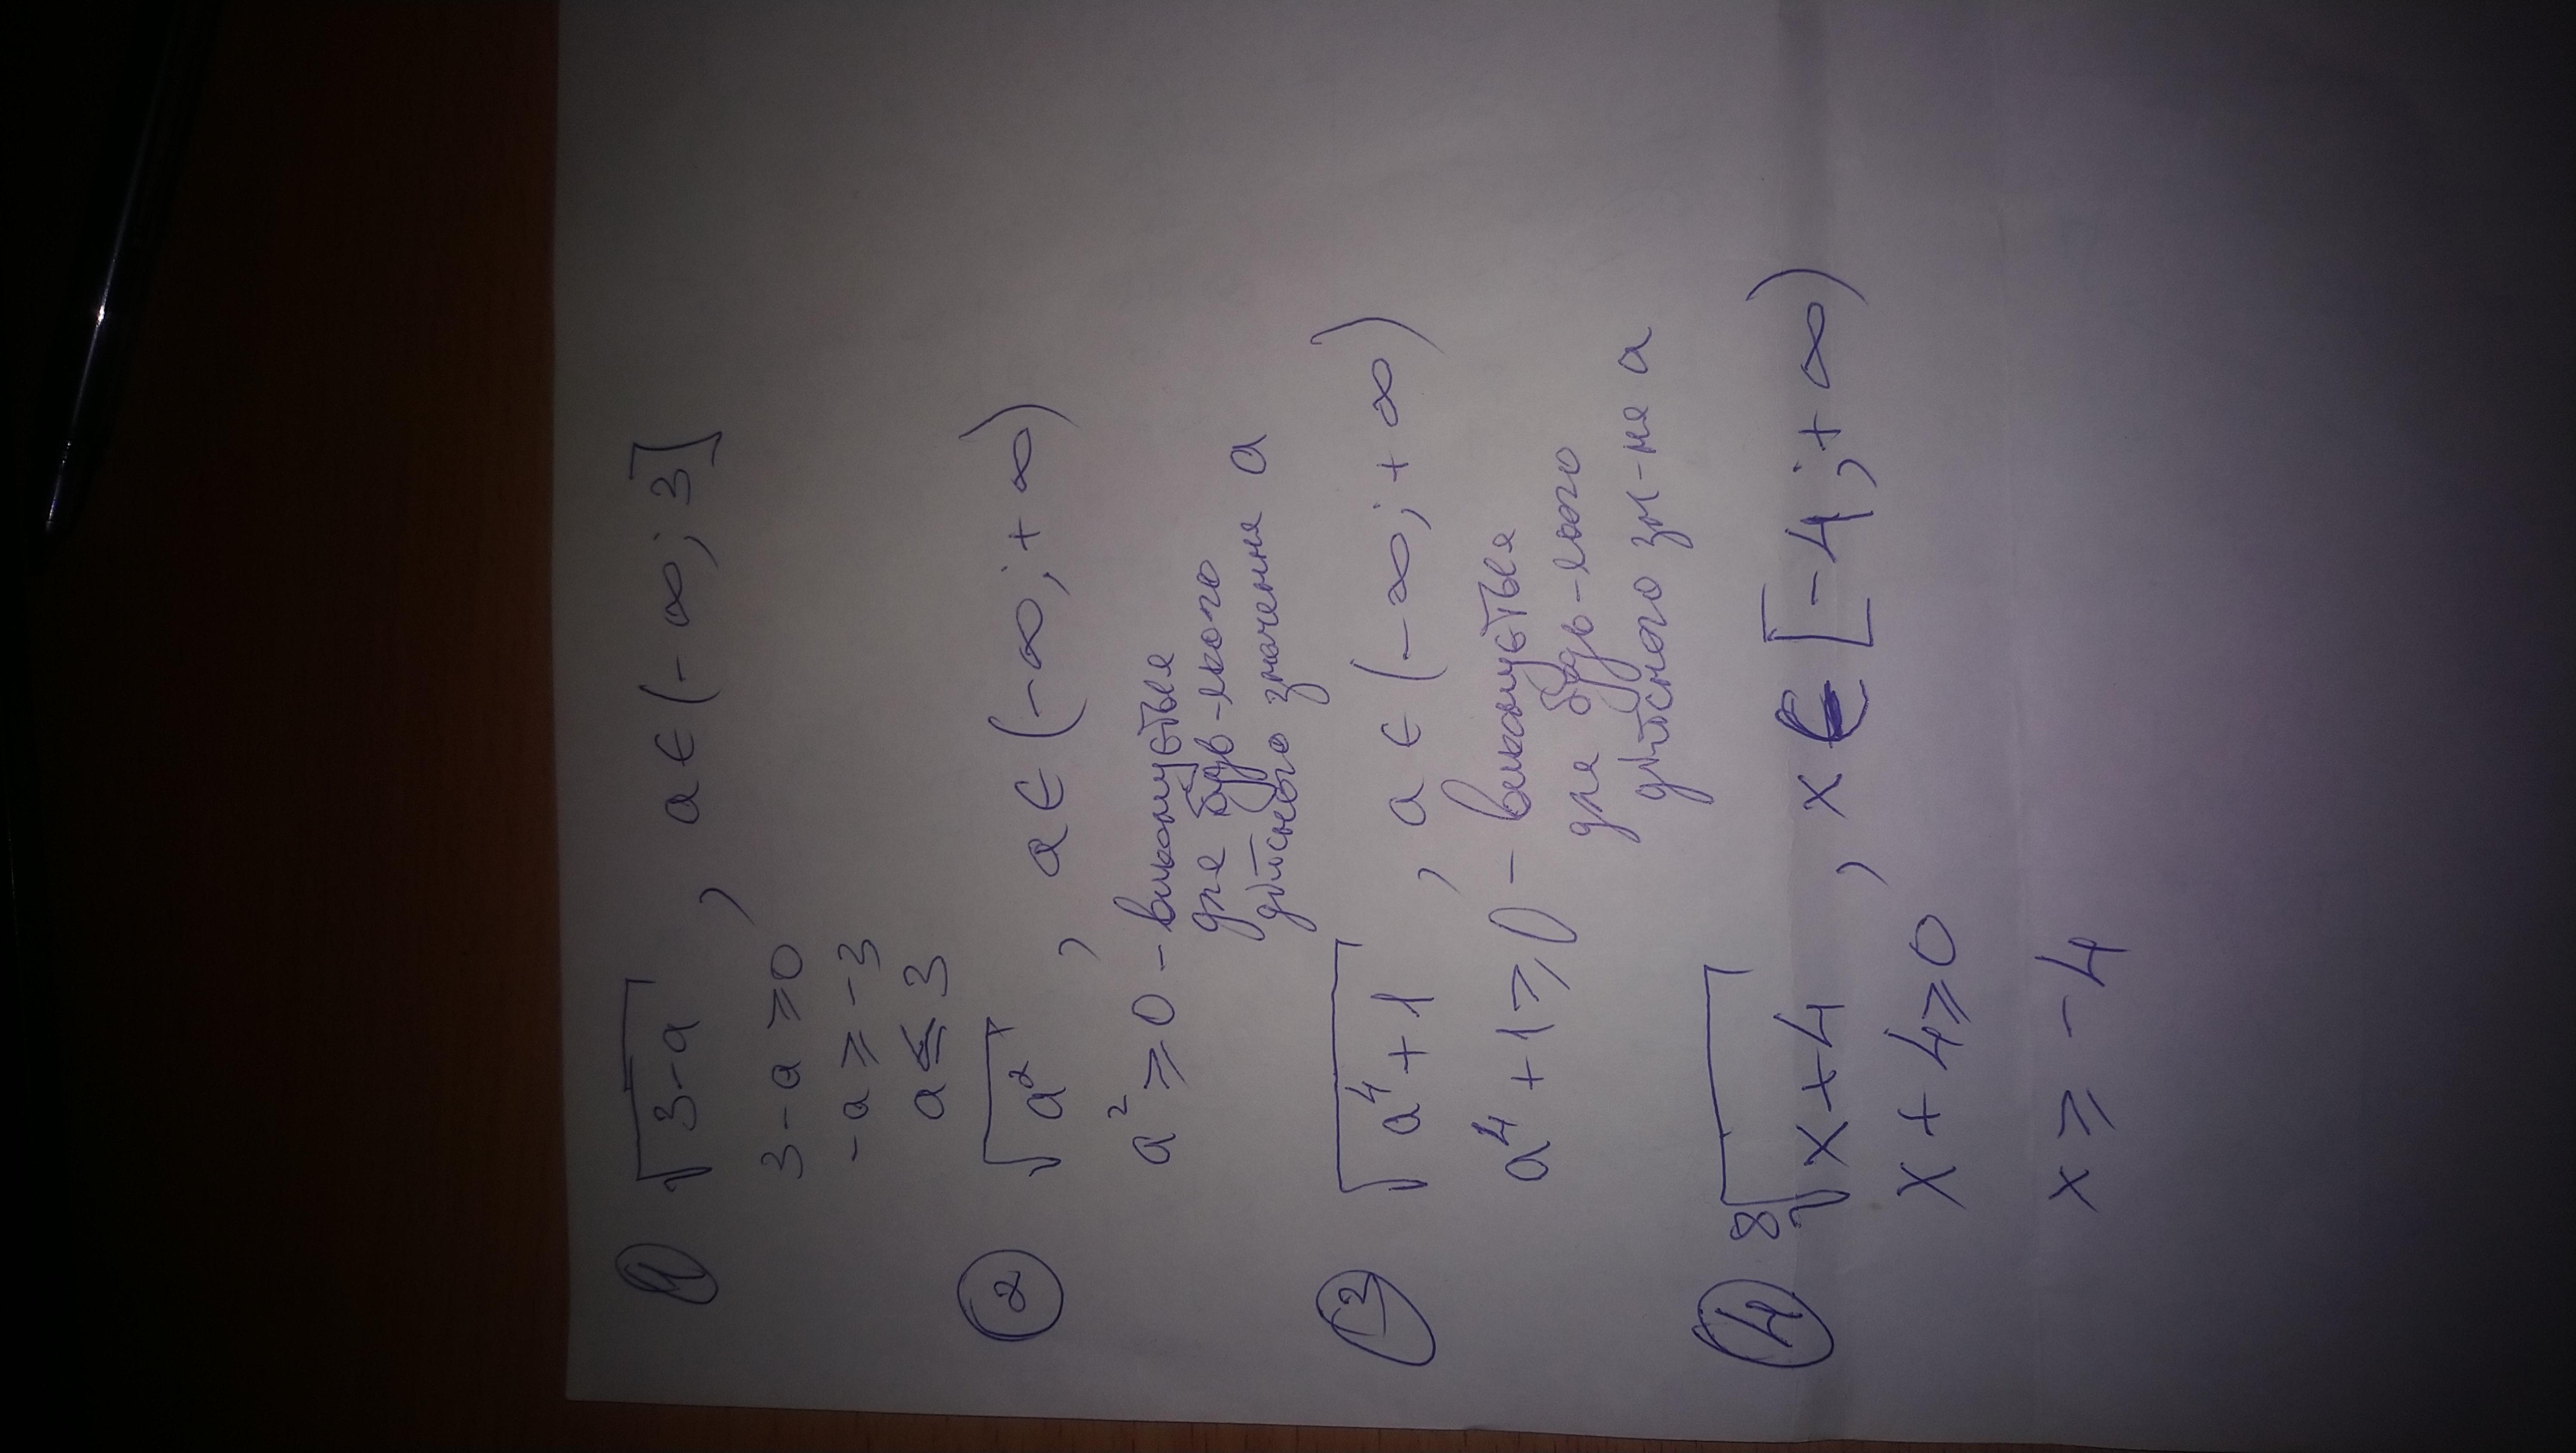 1 √3-a , a ∈ (-∞; 3]
3-a ≥ 0
-a ≥ -3
a ≤ 3
2 √a² , a ∈ (-∞; +∞)
a² ≥ 0 - виконується
для будь-якого
дійсного значення a
3 √a⁴+1 , a ∈ (-∞; +∞)
a⁴+1 ≥ 0 - виконується
для будь-якого
дійсного зн-ня a
4 ⁸√x+4 , x ∈ [-4; +∞)
x+4 ≥ 0
x ≥ -4